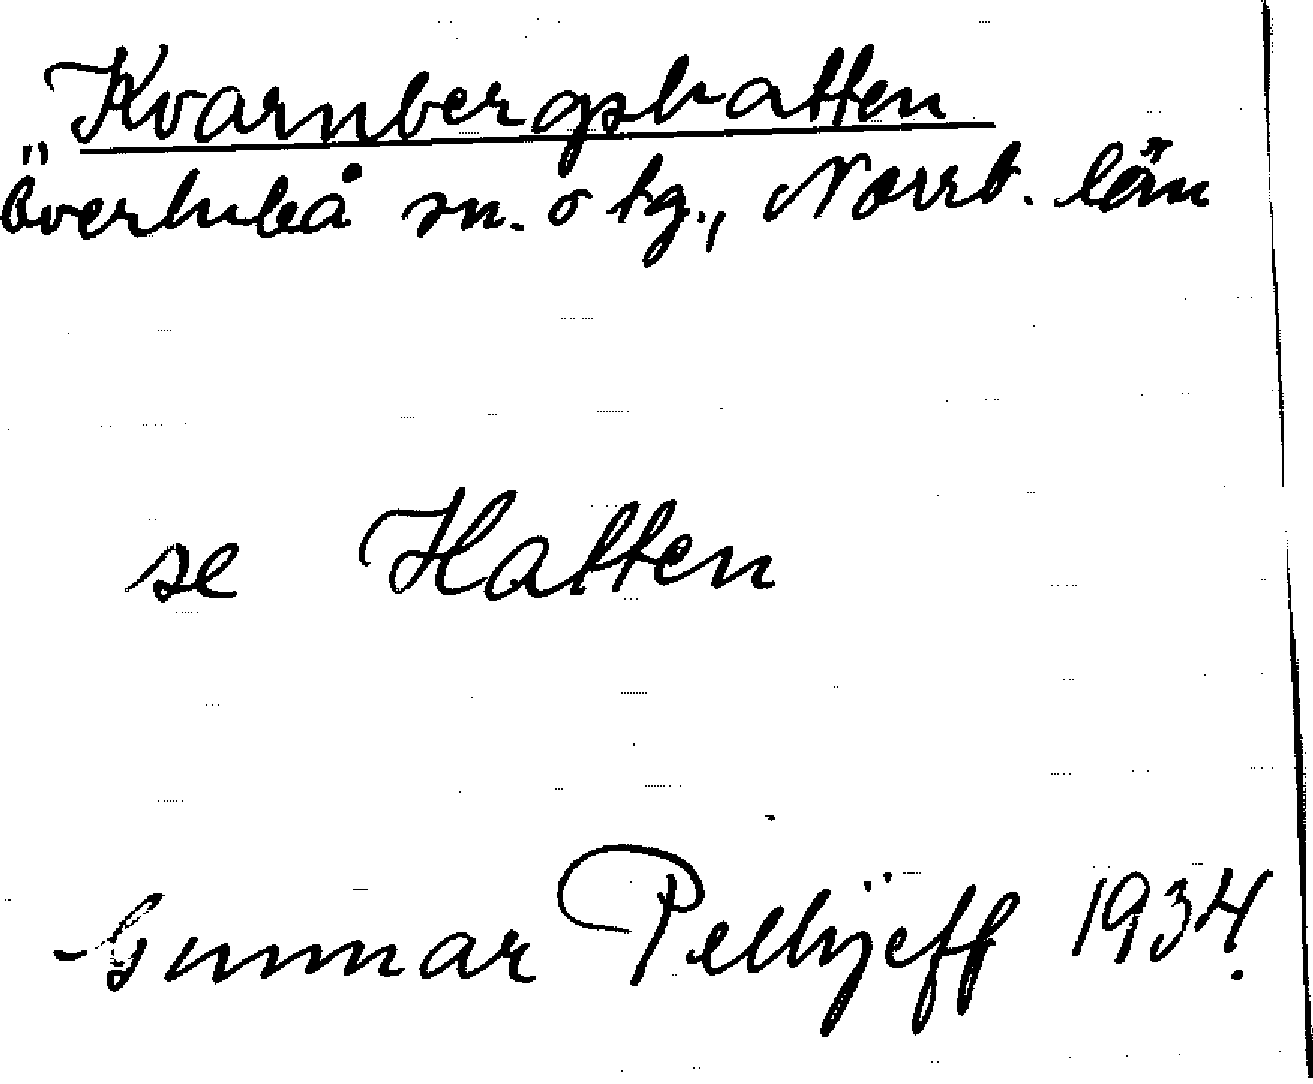 Kvarnbergshatten
Överluleå sn. o tg., Norrb. län
se Hatten
Gunnar Pellijeff 1934.